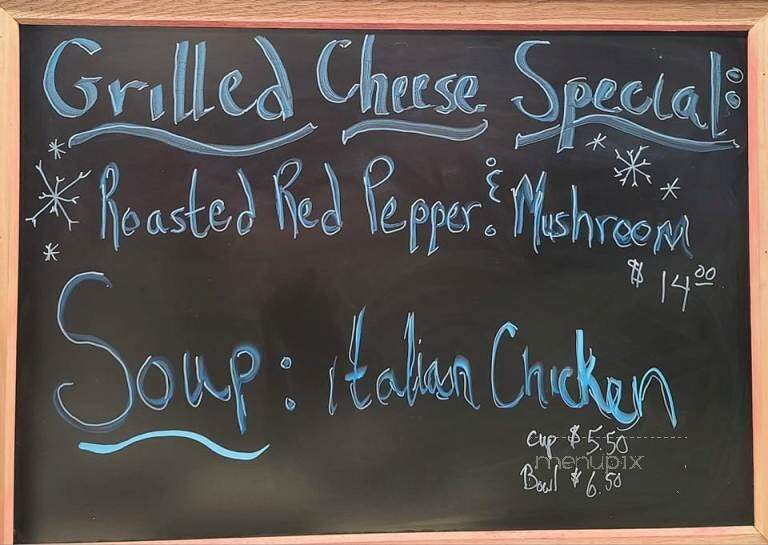 Grilled Cheese Special:
Roasted Red Pepper & Mushroom
$ 14.00
Soup: Italian Chicken
Cup $5.50
menupix
Bowl $6.50